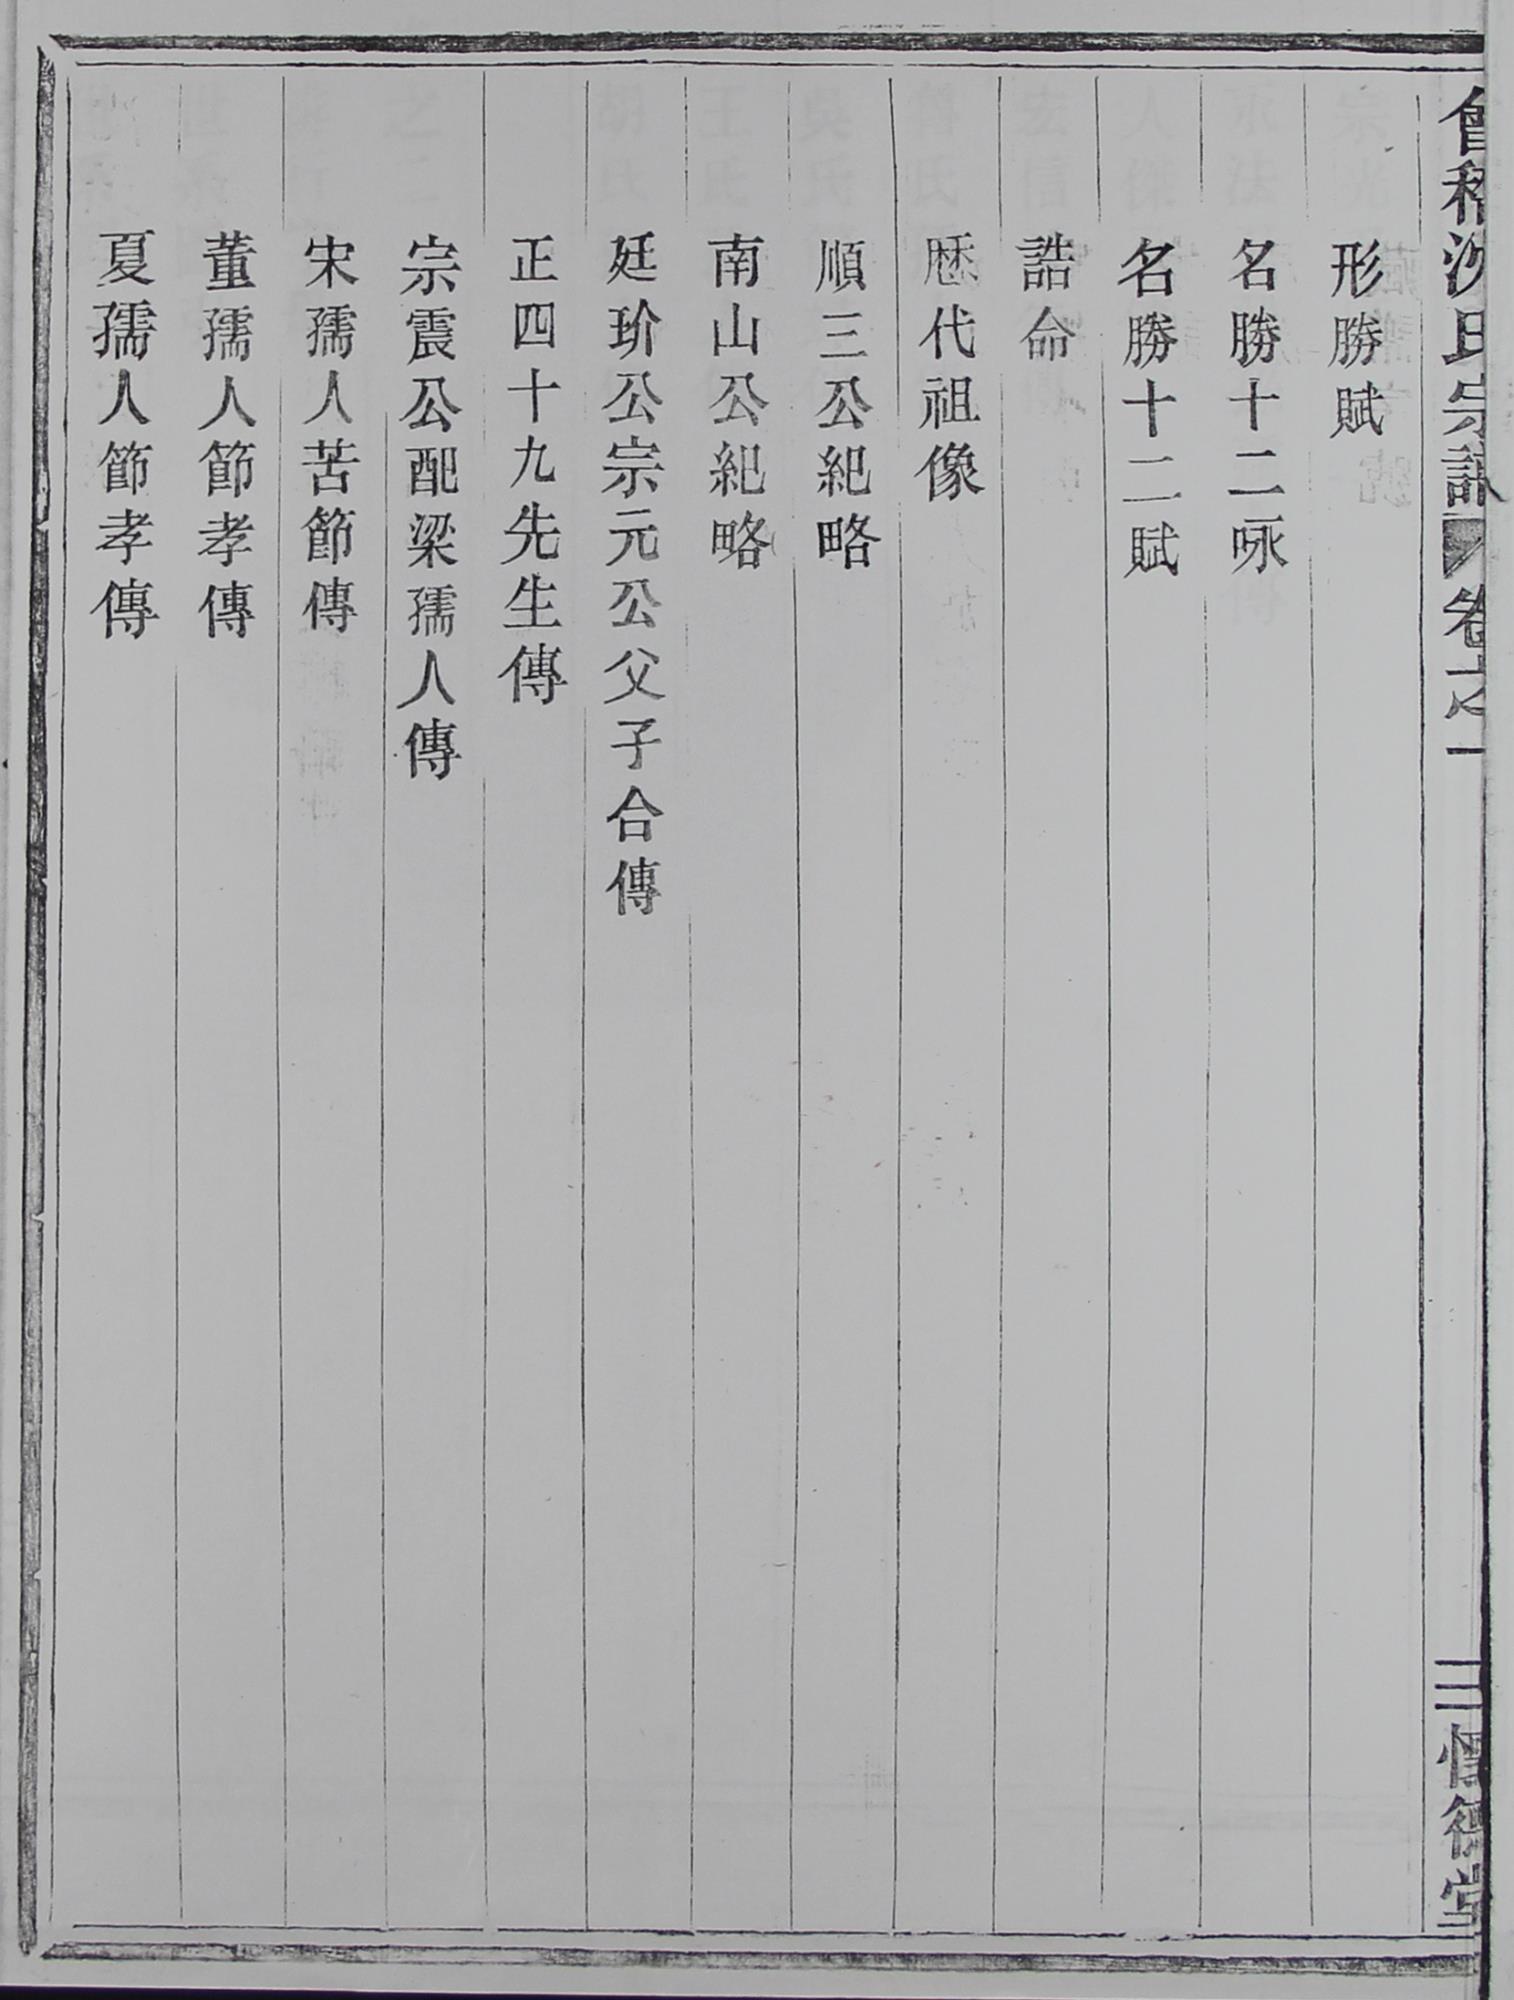 會稽沈氏宗譜 卷之一 三 德堂
形勝賦
名勝十二咏
名勝十二賦
誥命
歷代祖像
順三公紀略
南山公紀略
廷玠公宗元公父子合傳
正四十九先生傳
宗震公配梁孺人傳
宋孺人苦節傳
董孺人節孝傳
夏孺人節孝傳